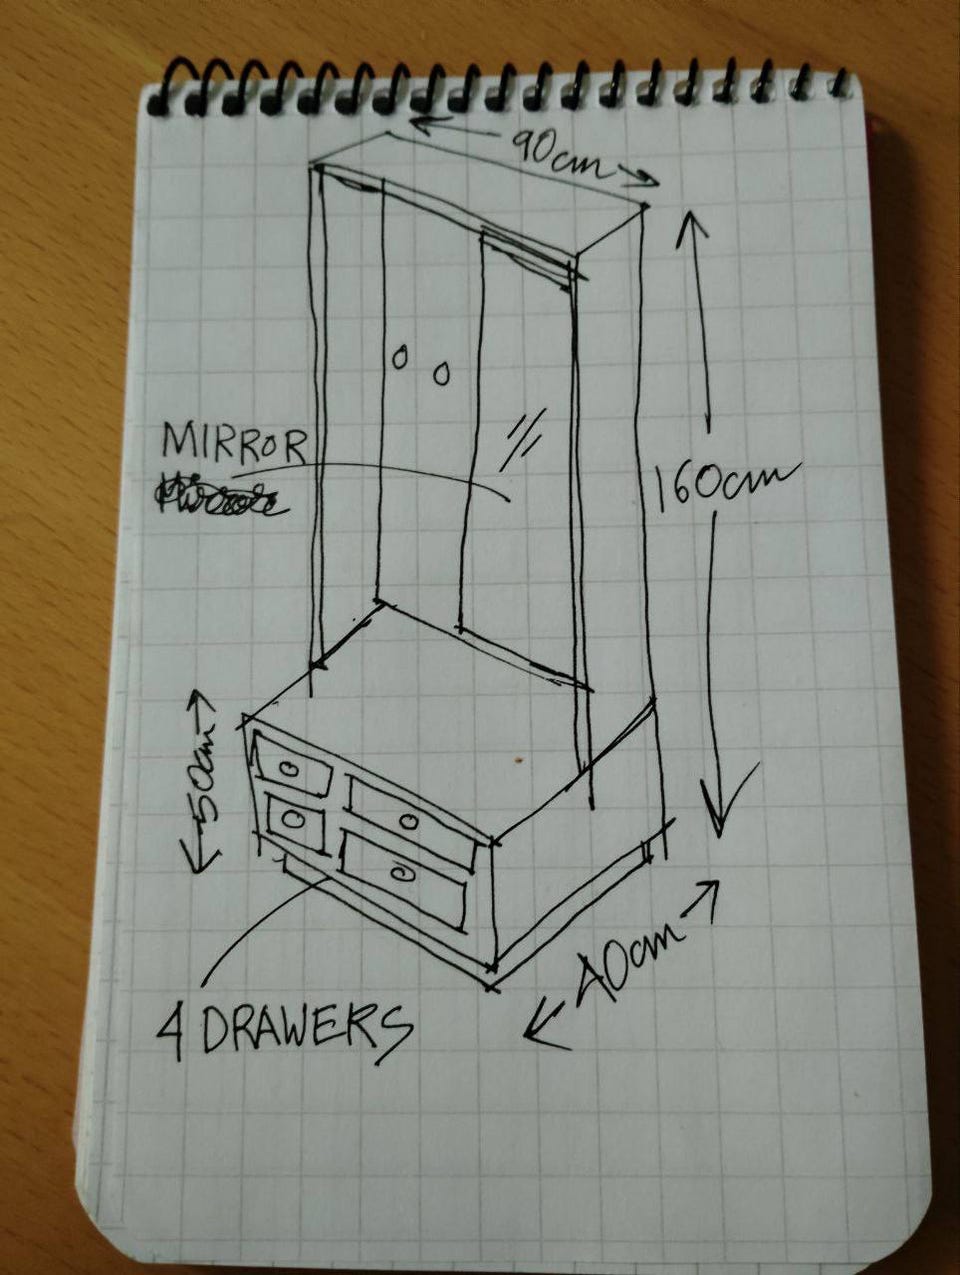 90cm
MIRROR
160cm
50cm
40cm
4 DRAWERS